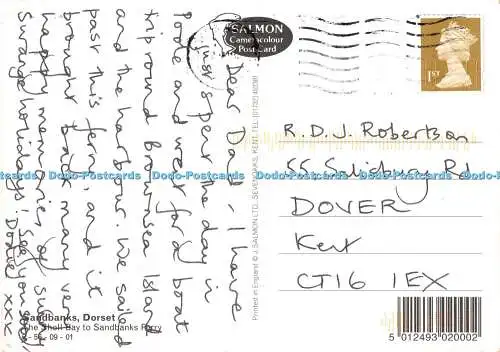 Dear David - I have
just spent the day in
Poole and went for a boat
trip round Brownsea Island
and the harbour. We sailed
past this ferry, and it
brought back many very
happy memories of our
Swanage holidays! See you soon,
xxx
SALMON
Cameracolour
Post Card
1ST
R.D.J. Robertson
55 Salisbury Rd
DOVER
Kent
CT16 1EX
Printed in England © J. SALMON LTD., SEVENOAKS, KENT. TEL:
Sandbanks, Dorset
The Shell Bay to Sandbanks Ferry
09 - 01
5 012493 020002
Dodo-Postcards Dodo-Postcards Dodo-Postcards Dodo-Postcards Dodo-Postcards